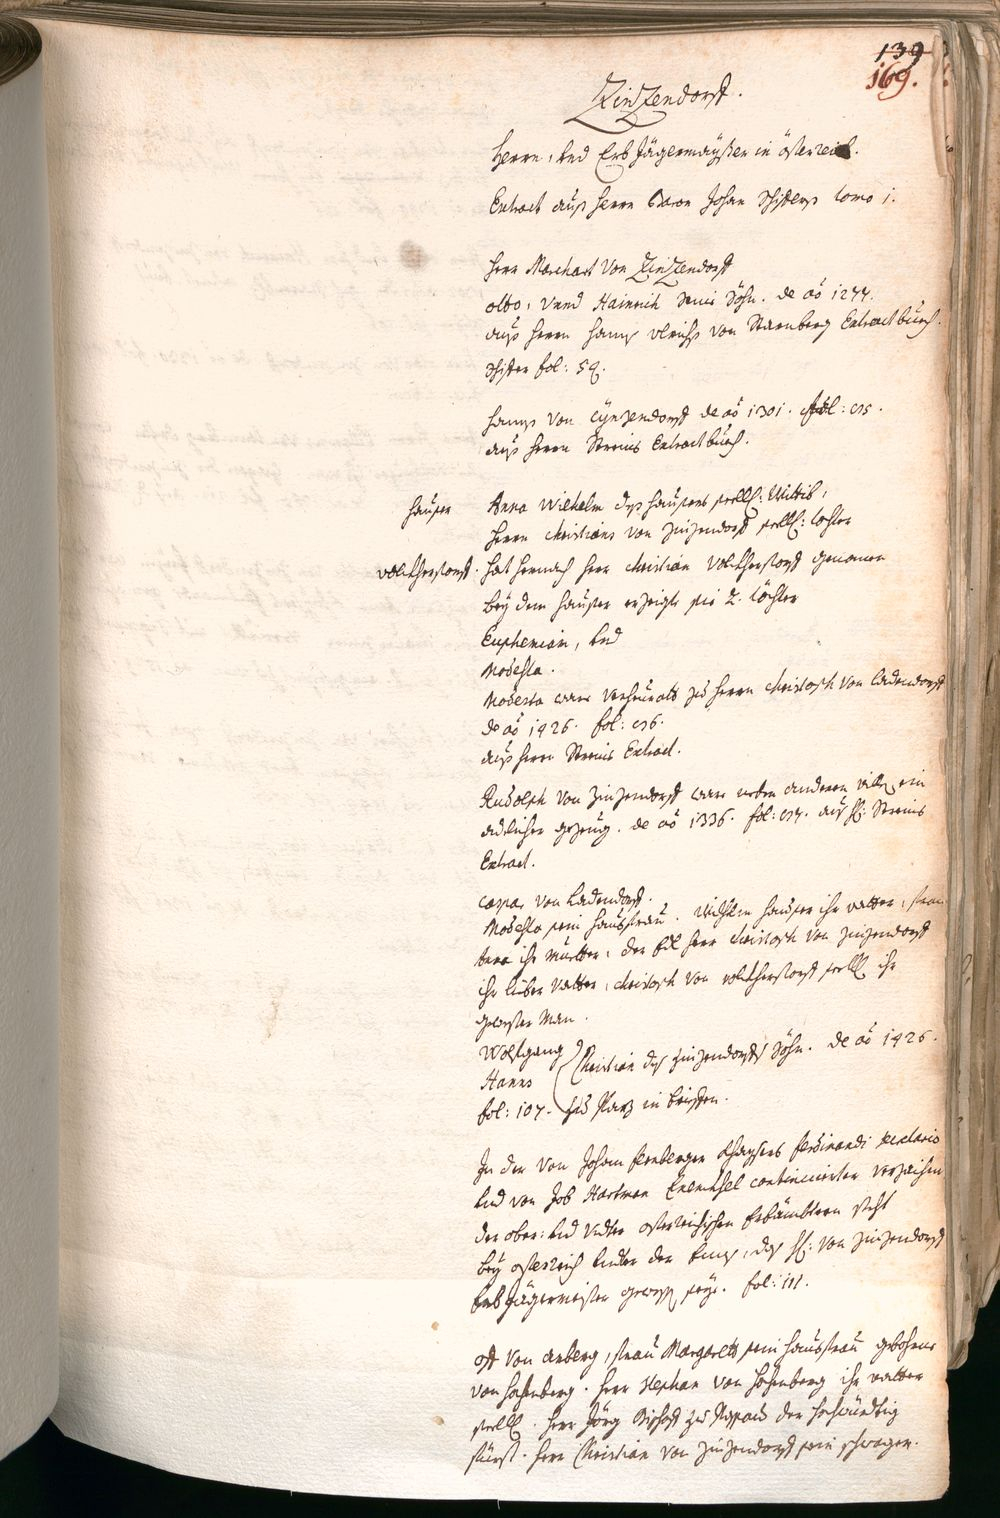 139
169.
Zintzendorff.
Herrn, vnd Erb Jägermaÿster in österreich.
Extract auß herrn Baron Johan tomo 1.
Herr Marchart von Zintzendorff
otto, vnnd Hainrich seine Söhn. de aõ 1277.
auß herrn hanß vlrichß von Starnberg Extractbuech.
fol: 59.
hanß von Cÿnzendorff de aõ 1301. fol: 95.
auß herrn Streins Extractbuech.
hauser
Anna Wilhelm deß hausers seell: Wittib,
herrn Christians von Zinzendorff seell: tochter
volkherstorff.
hat hernach herr Christian Volkherstorff genomen
beÿ dem hauser erzeigte sie 2. töchter
Euphemian, vnd
Modesta.
Modesta ware verheürath zu herrn Christoph von Ladendorff
de aõ 1426. fol: 96.
auß herrn Streins Extract.
Rudolph von Zinzendorff ware neben anderen ein
adlicher gezeüg. de aõ 1336. fol: 97. auß H: Streins
Extract.
Caspar von Ladendorff.
Modesta sein haußfrau. Wilhelm hauser ihr vatter, frau
Anna ihr Muetter, der Edl herr Christoph von Zinzendorff
ihr lieber vatter, Christoph von volkherstorff seell ihr
gewester Man.
Wolfgang
Hanns
Christian deß Zinzendorffs Söhn. de aõ 1426.
fol: 107. zu in
In der von Johan Khaÿsers Ferdinandi secretario
vnd von Job Hartman Enenkhel continuierten verzaichnuß
der ober: vnd vnter österreichischen Erbämbtern steht
beÿ österreich vnter der Ennß, daß H: von Zinzendorff
Erb Jägermeister geweßt seÿe. fol: 111.
von Arberg, frau Margareth sein haußfrau gebohrne
von Hohenberg. herr Stephan von Hohenberg ihr vatter
seell. herr Jörg Bischoff zu Passau der hochwürdtig
fürst. herr Christian von Zinzendorff sein schwager.